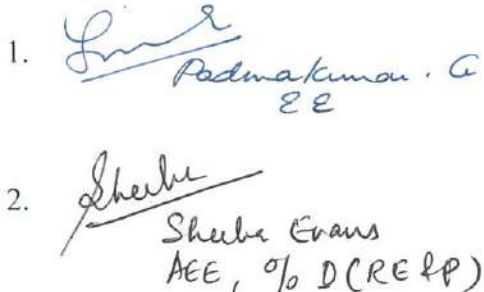 1.
Padmakumar. G
EE
2. Sheeba
Sheeba Evans
AEE, O/o D(RE&P)